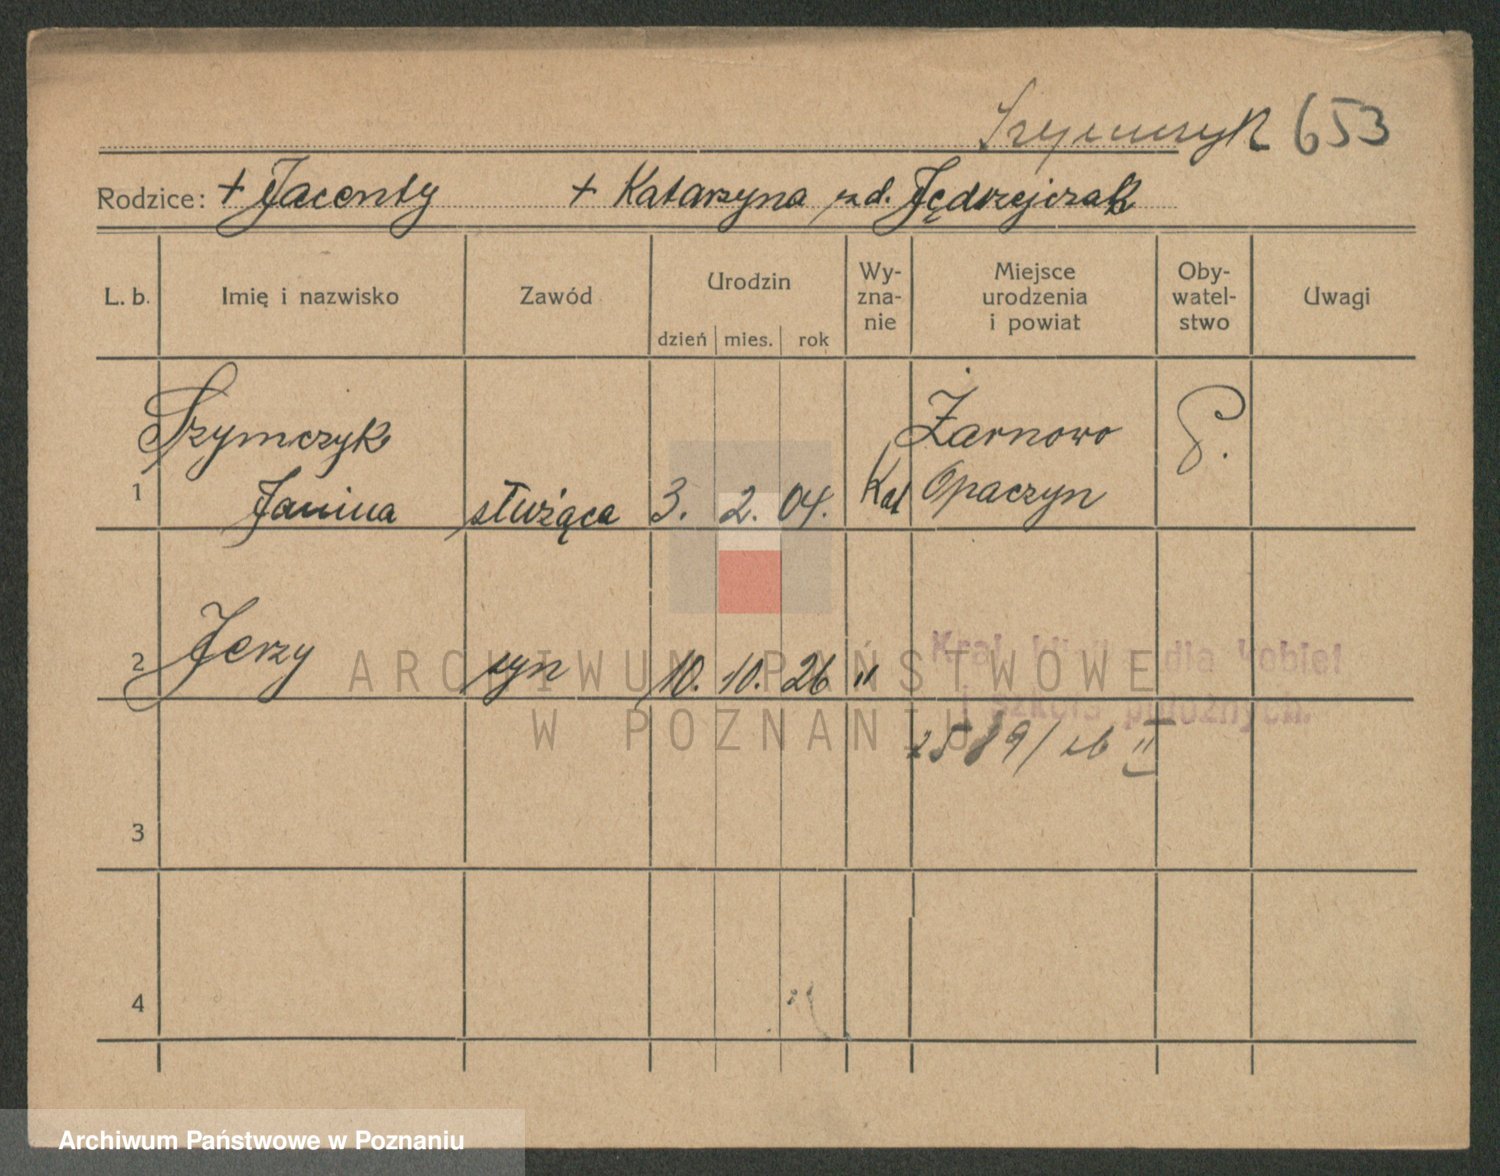 Szymczyk 653
Rodzice: + Jacenty + Katarzyna zd. Jędrzejczak
L. b. Imię i nazwisko Zawód Urodzin dzień mies. rok Wy-zna-nie Miejsce urodzenia i powiat Oby-watel-stwo Uwagi
Szymczyk Żarnowo P.
1 Janina służąca 3. 2. 04. Kat Opaczyn
2 Jerzy syn 10. 10. 26 "
Kraj. dla kobiet
i położnych.
2589/26 II
3
4
ARCHIWUM PAŃSTWOWE
W POZNANIU
Archiwum Państwowe w Poznaniu